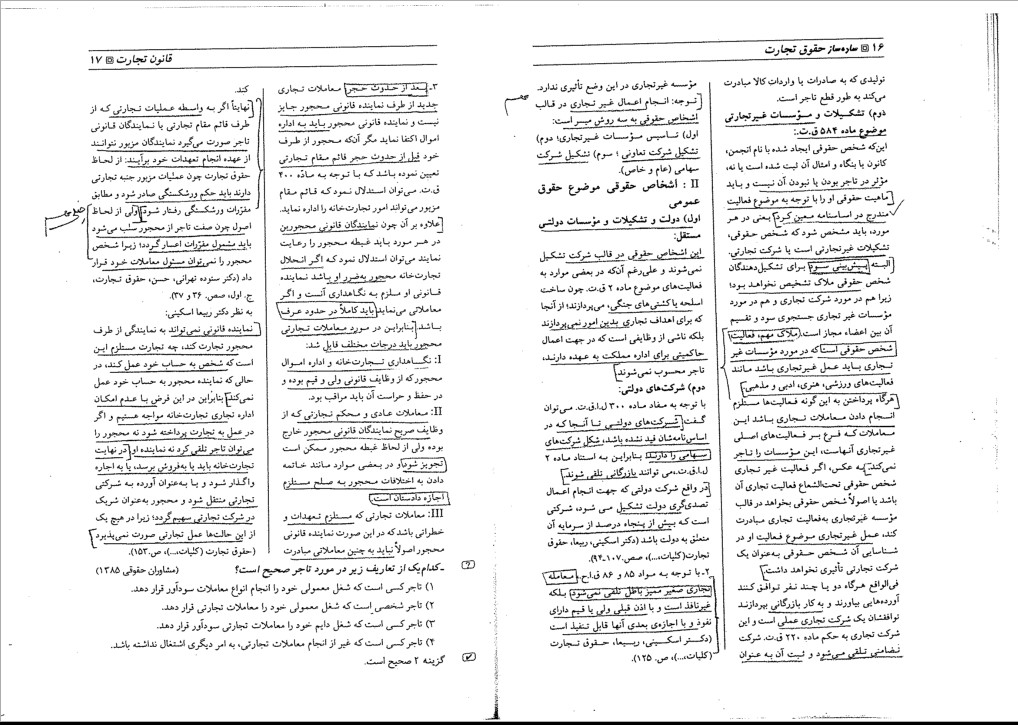 ۱۶ ساده‌ساز حقوق تجارت
تولیدی که به صادرات یا واردات کالا مبادرت
می‌کند به طور قطع تاجر است.
دوم) تشکیلات و مؤسسات غیرتجارتی
موضوع ماده ۵۸۴ ق.ت.:
این‌که شخص حقوقی ایجاد شده با نام انجمن،
کانون یا بنگاه و امثال آن ثبت شده است یا نه،
مؤثر در تاجر بودن یا نبودن آن نیست و باید
ماهیت حقوقی او را با توجه به موضوع فعالیت
مندرج در اساسنامه معین کرد یعنی در هر
مورد، باید مشخص شود که شخص حقوقی،
تشکیلات غیرتجارتی است یا شرکت تجارتی.
البته پیش‌بینی سود برای تشکیل‌دهندگان
شخص حقوقی ملاک تشخیص نخواهد بود؛
زیرا هم در مورد شرکت تجاری و هم در مورد
مؤسسات غیر تجاری جستجوی سود و تقسیم
آن بین اعضاء مجاز است. ملاک مهم، فعالیت
شخص حقوقی است که در مورد مؤسسات غیر
تجاری باید عمل غیرتجاری باشد مانند
فعالیت‌های ورزشی، هنری، ادبی و مذهبی.
هرگاه پرداختن به این گونه فعالیت‌ها مستلزم
انجام دادن معاملات تجاری باشد این
معاملات که فرع بر فعالیت‌های اصلی
غیرتجاری آنهاست، این مؤسسات را تاجر
نمی‌کند. به عکس، اگر فعالیت غیر تجاری
شخص حقوقی تحت‌الشعاع فعالیت تجاری آن
باشد یا اصولاً شخص حقوقی بخواهد در قالب
مؤسسه غیرتجاری به‌فعالیت تجاری مبادرت
کند، عمل غیرتجاری موضوع فعالیت او در
شناسایی آن شخص حقوقی به‌عنوان یک
شرکت تجارتی تأثیری نخواهد داشت.
فی‌الواقع هرگاه دو یا چند نفر توافق کنند
آورده‌هایی بیاورند و به کار بازرگانی بپردازند
توافقشان یک شرکت تجاری عملی است و این
شرکت تجاری به حکم ماده ۲۲۰ ق.ت. شرکت
تضامنی تلقی می‌شود و ثبت آن به عنوان
مؤسسه غیرتجاری در این وضع تأثیری ندارد.
توجه: انجام اعمال غیر تجاری در قالب
اشخاص حقوقی به سه روش میسر است:
اول) تاسیس مؤسسات غیرتجاری؛ دوم)
تشکیل شرکت تعاونی؛ سوم) تشکیل شرکت
سهامی (عام و خاص).
II : اشخاص حقوقی موضوع حقوق
عمومی
اول) دولت و تشکیلات و مؤسسات دولتی
مستقل:
این اشخاص حقوقی در قالب شرکت تشکیل
نمی‌شوند و علی‌رغم آن‌که در بعضی موارد به
فعالیت‌های موضوع ماده ۲ ق.ت. چون ساخت
اسلحه یا کشتی‌های جنگی، می‌پردازند؛ از آنجا
که برای اهداف تجاری بدین امور نمی‌پردازند
بلکه ناشی از وظایفی است که در جهت اعمال
حاکمیتی برای اداره مملکت به عهده دارند،
تاجر محسوب نمی‌شوند.
دوم) شرکت‌های دولتی:
با توجه به مفاد ماده ۳۰۰ ل.ا.ق.ت. می‌توان
گفت شرکت‌های دولتی تا آنجا که در
اساس‌نامه‌شان قید نشده باشد، شکل شرکت‌های
سهامی را دارند. بنابراین به استناد ماده ۲
ل.ا.ق.ت. می توانند بازرگانی تلقی شوند.
در واقع شرکت دولتی که جهت انجام اعمال
تصدی‌گری دولت تشکیل می شود، شرکتی
است که بیش از پنجاه درصد از سرمایه آن
متعلق به دولت باشد (دکتر اسکینی، ربیعا، حقوق
تجارت(کلیات،...)، صص.۱۰۷-۹۴).
۲-با توجه به مواد ۸۵ و ۸۶ ق.ا.ح. معامله
تجاری صغیر ممیز باطل تلقی نمی‌شود بلکه
غیرنافذ است و با اذن قبلی ولی یا قیم دارای
نفوذ و با اجازه‌ی بعدی آنها قابل تنفیذ است
(دکتر اسکینی، ربیعا، حقوق تجارت
(کلیات،...)، ص. ۱۲۵).
قانون تجارت ۱۷
۳- بعد از حدوث حجر معاملات تجاری
جدید از طرف نماینده قانونی محجور جایز
نیست و نماینده قانونی محجور باید به اداره
اموال اکتفا نماید مگر آن‌که محجور از طرف
خود قبل از حدوث حجر قائم مقام تجارتی
تعیین نموده باشد که با توجه به ماده ۴۰۰
ق.ت. می‌توان استدلال نمود که قائم مقام
مزبور می‌تواند امور تجارت‌خانه را اداره نماید.
علاوه بر آن چون نمایندگان قانونی محجورین
در هر مورد باید غبطه محجور را رعایت
نمایند می‌توان استدلال نمود که اگر انحلال
تجارت‌خانه محجور به‌ضرر او باشد نماینده
قانونی او ملزم به نگاهداری آنست و اگر
معاملاتی می‌نماید باید کاملاً در حدود عرف
باشد. بنابراین در مورد معاملات تجارتی
محجور باید درجات مختلف قایل شد:
I: نگاهداری تجارت‌خانه و اداره اموال
محجور که از وظایف قانونی ولی و قیم بوده و
در حفظ و حراست آن باید مراقب بود.
II: معاملات عادی و محکم تجارتی که از
وظایف صریح نمایندگان قانونی محجور خارج
بوده ولی از لحاظ غبطه محجور ممکن است
تجویز شود و در بعضی موارد مانند خاتمه
دادن به اختلافات محجور به صلح مستلزم
اجازه دادستان است.
III: معاملات تجارتی که مستلزم تعهدات و
خطراتی باشد که در این صورت نماینده قانونی
محجور اصولاً نباید به چنین معاملاتی مبادرت
کند.
نهایتاً اگر به واسطه عملیات تجارتی که از
طرف قائم مقام تجارتی یا نمایندگان قانونی
تاجر صورت می‌گیرد نمایندگان مزبور نتوانند
از عهده انجام تعهدات خود برآیند: از لحاظ
حقوق تجارت چون عملیات مزبور جنبه تجارتی
دارند باید حکم ورشکستگی صادر شود و مطابق
مقررات ورشکستگی رفتار شود. ولی از لحاظ
اصول چون صفت تاجر از محجور سلب می‌شود
باید مشمول مقررات اعسار گردد؛ زیرا شخص
محجور را نمی‌توان مسئول معاملات خود قرار
داد (دکتر ستوده تهرانی، حسن، حقوق تجارت،
ج. اول، صص. ۳۶ و ۳۷).
به نظر دکتر ربیعا اسکینی:
نماینده قانونی نمی‌تواند به نمایندگی از طرف
محجور تجارت کند، چه تجارت مستلزم این
است که شخص به حساب خود عمل کند، در
حالی که نماینده محجور به حساب خود عمل
نمی‌کند. بنابراین در این فرض با عدم امکان
اداره تجاری تجارت‌خانه مواجه هستیم و اگر
در عمل به تجارت پرداخته شود نه محجور را
می‌توان تاجر تلقی کرد نه نماینده او. در نهایت
تجارت‌خانه باید یا به‌فروش برسد، یا به اجاره
واگذار شود و یا به‌عنوان آورده به شرکتی
تجارتی منتقل شود و محجور به‌عنوان شریک
در شرکت تجارتی سهیم گردد؛ زیرا در هیچ یک
از این حالت‌ها عمل تجارتی صورت نمی‌پذیرد
(حقوق تجارت (کلیات،...)، ص.۱۵۳).
؟ ـ کدام‌یک از تعاریف زیر در مورد تاجر صحیح است؟ (مشاوران حقوقی ۱۳۸۵)
۱) تاجر کسی است که شغل معمولی خود را انجام انواع معاملات سودآور قرار دهد.
۲) تاجر شخصی است که شغل معمولی خود را معاملات تجارتی قرار دهد.
۳) تاجر کسی است که شغل دایم خود را معاملات تجارتی سودآور قرار دهد.
۴) تاجر کسی است که غیر از انجام معاملات تجارتی، به امر دیگری اشتغال نداشته باشد.
گزینه ۲ صحیح است.